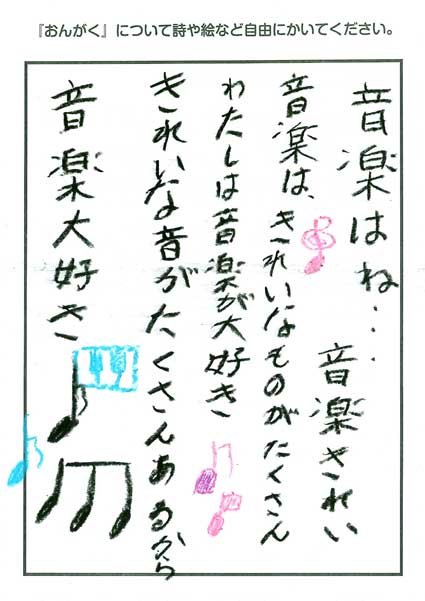 『おんがく』について詩や絵など自由にかいてください。
音楽はね…
音楽きれい
音楽は、きれいなものがたくさん
わたしは音楽が大好き
きれいな音がたくさんあるから
音楽大好き